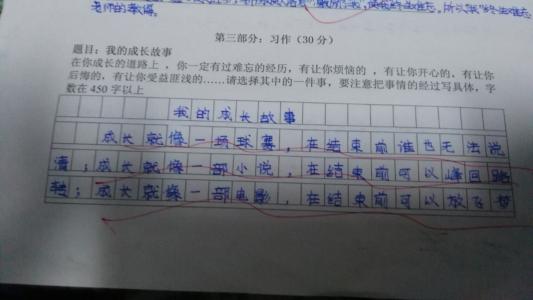 老师的教悔。
第三部分：习作（30分）
题目：我的成长故事
在你成长的道路上，你一定有过难忘的经历，有让你烦恼的，有让你开心的，有让你
后悔的，有让你受益匪浅的……请选择其中的一件事，要注意把事情的经过写具体，字
数在450字以上
我的成长故事
成长就像一场球赛，在结束前谁也无法说
清；成长就像一部小说，在结束前可以峰回路
转；成长就像一部电影，在结束前可以放飞梦